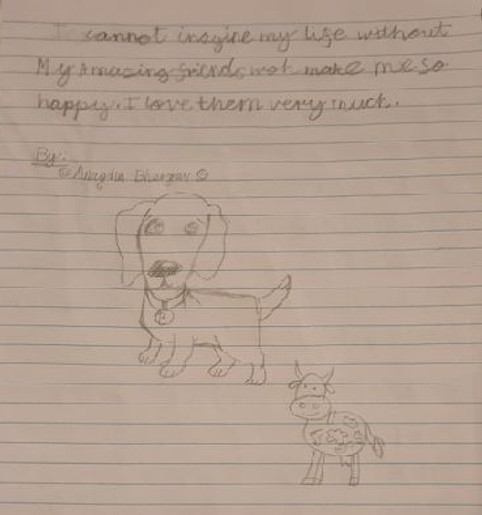 I cannot imagine my life without
My Amazing friends, wot make me so
happy. I love them very much.
By: